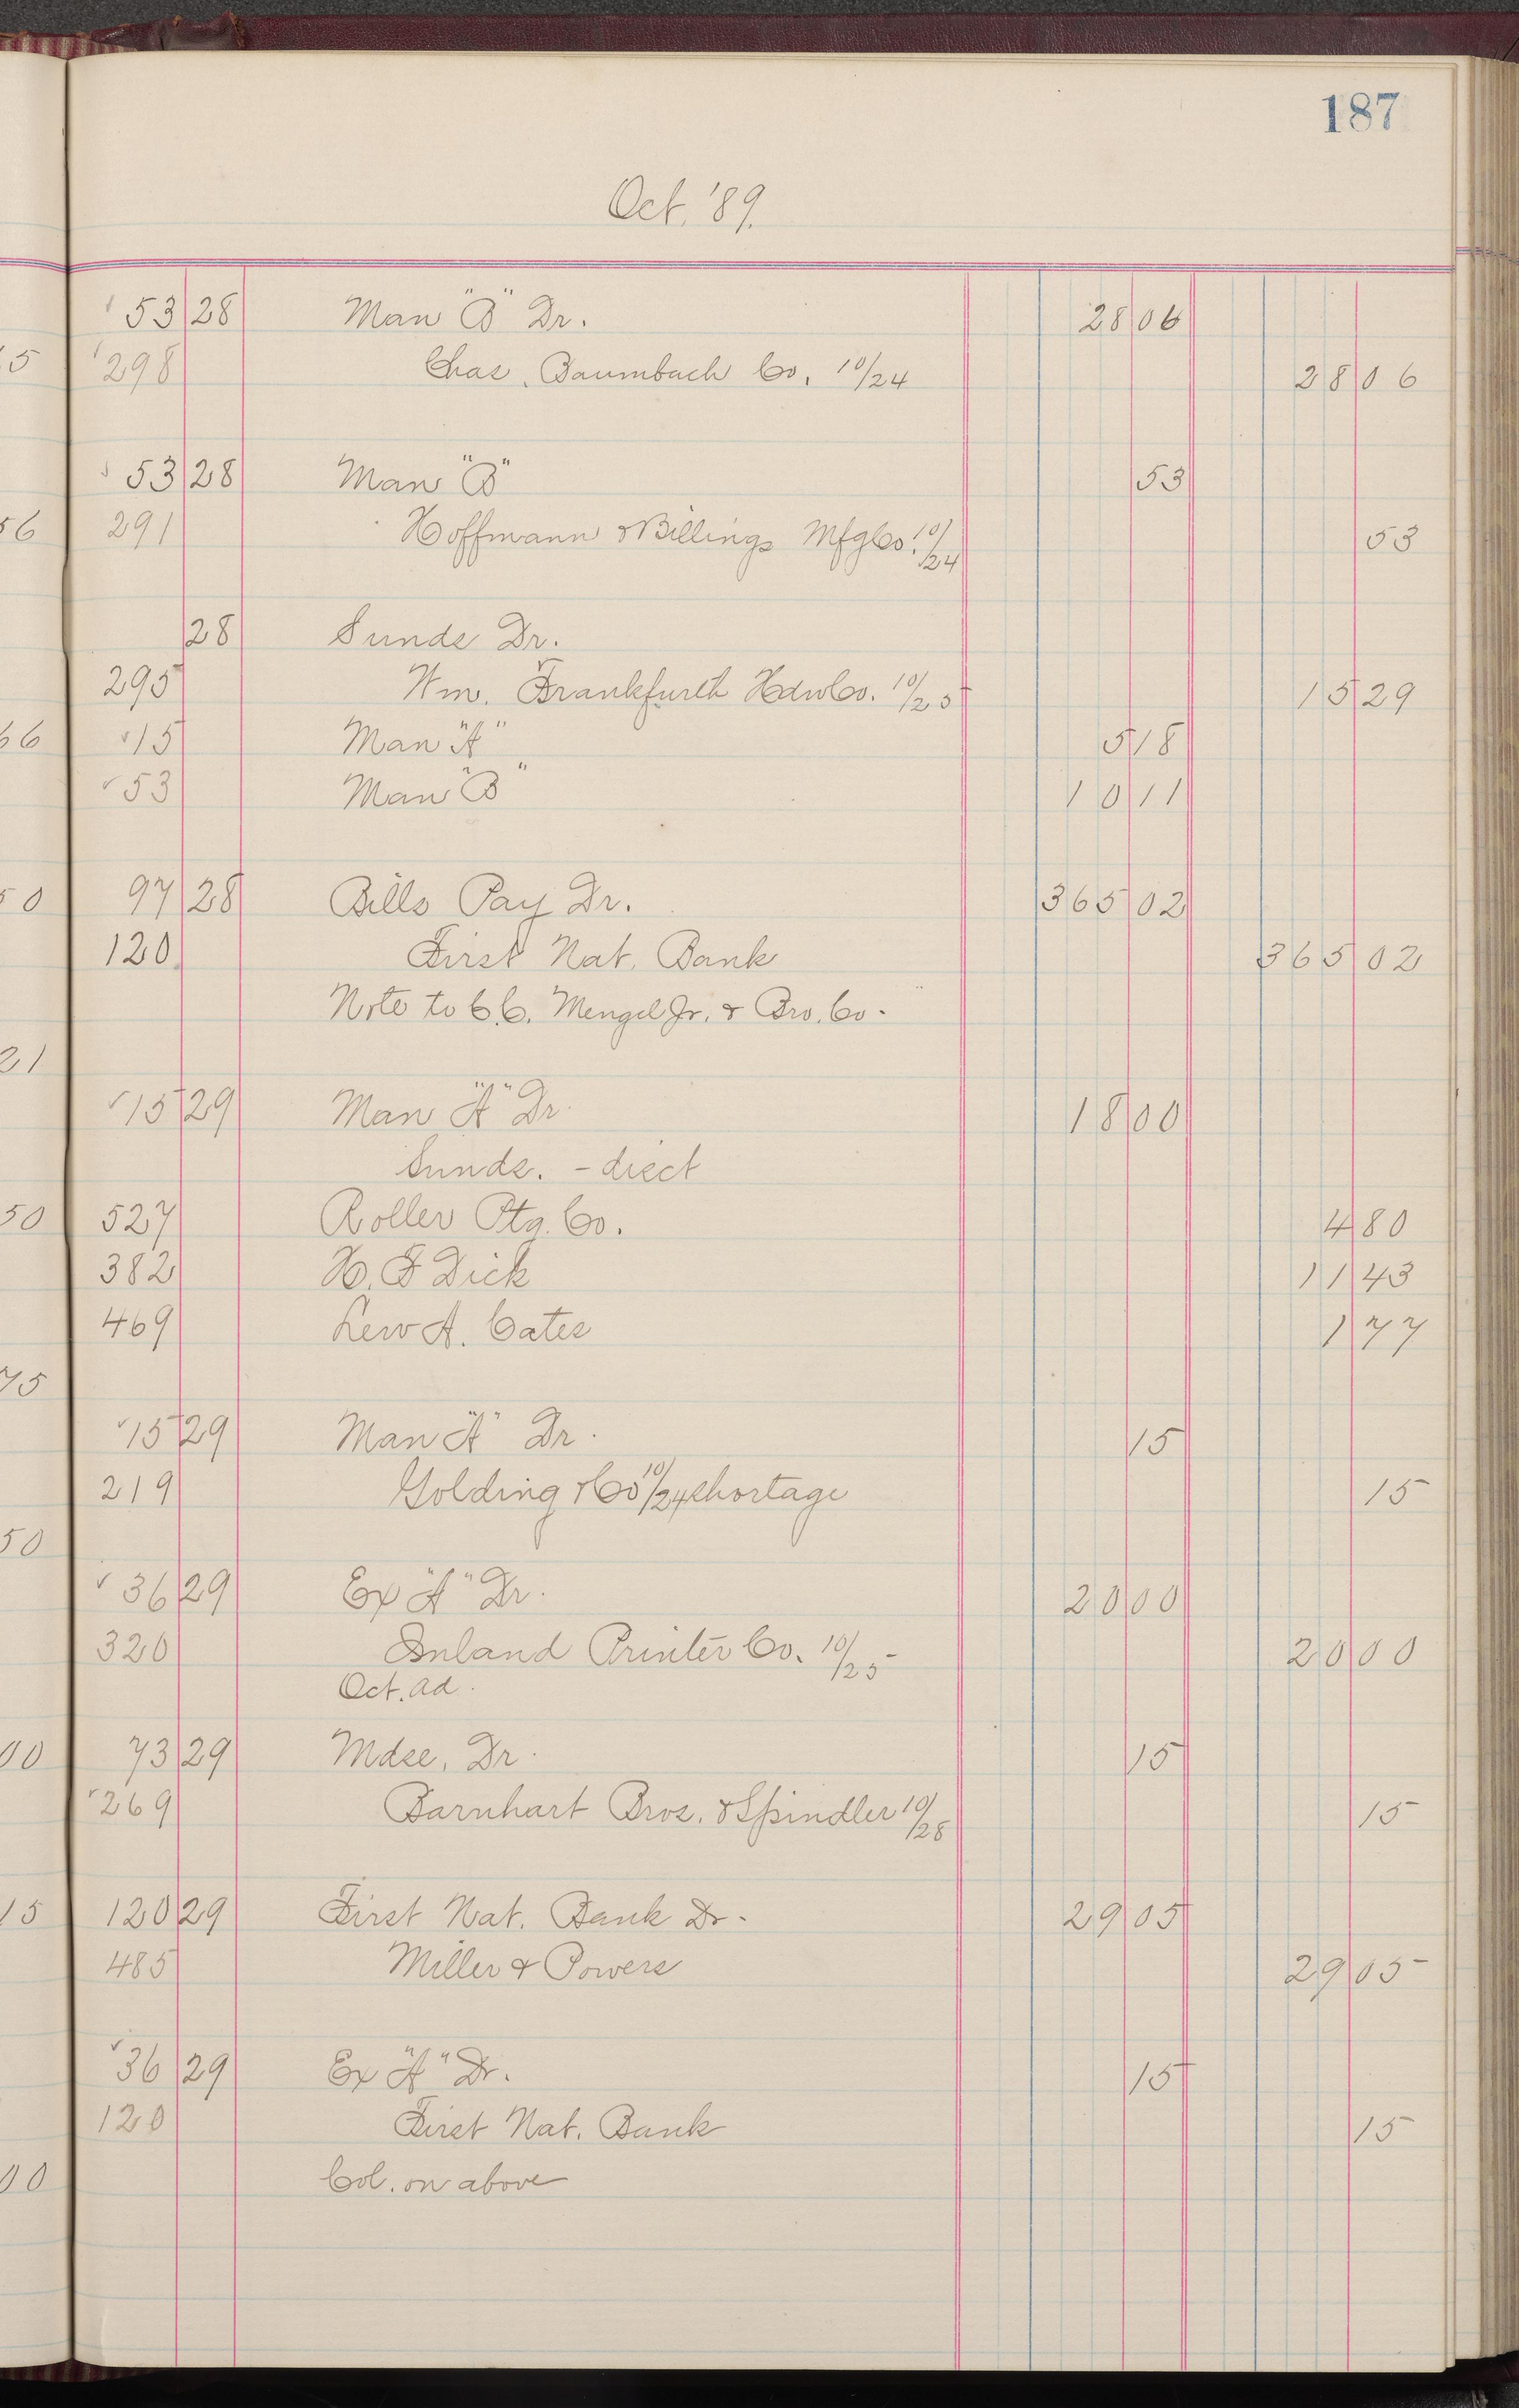 187
Oct. '89.
53 28 Man "B" Dr. 28 06
298 Chas. Baumbach Co. 10/24 28 06
53 28 Man "B" 53
291 Hoffmann & Billings Mfg Co. 10/24 53
28 Sunds Dr.
295 Wm. Frankfurth Hdw Co. 10/25 15 29
15 Man "A" 5 18
53 Man "B" 10 11
97 28 Bills Pay Dr. 365 02
120 First Nat. Bank 365 02
Note to C.C. Mengel Jr. & Bro. Co.
15 29 Man "A" Dr. 18 00
Sunds. - disct
527 Roller Ptg. Co. 4 80
382 H. F Dick 11 43
469 Lew A. Cates 1 77
15 29 Man "A" Dr. 15
219 Golding & Co 10/24 shortage 15
36 29 Ex "A" Dr. 20 00
320 Inland Printer Co. 10/25 20 00
Oct. ad.
73 29 Mdse. Dr. 15
269 Barnhart Bros. & Spindler 10/28 15
120 29 First Nat. Bank Dr. 29 05
485 Miller & Powers 29 05
36 29 Ex "A" Dr. 15
120 First Nat. Bank 15
Col. on above